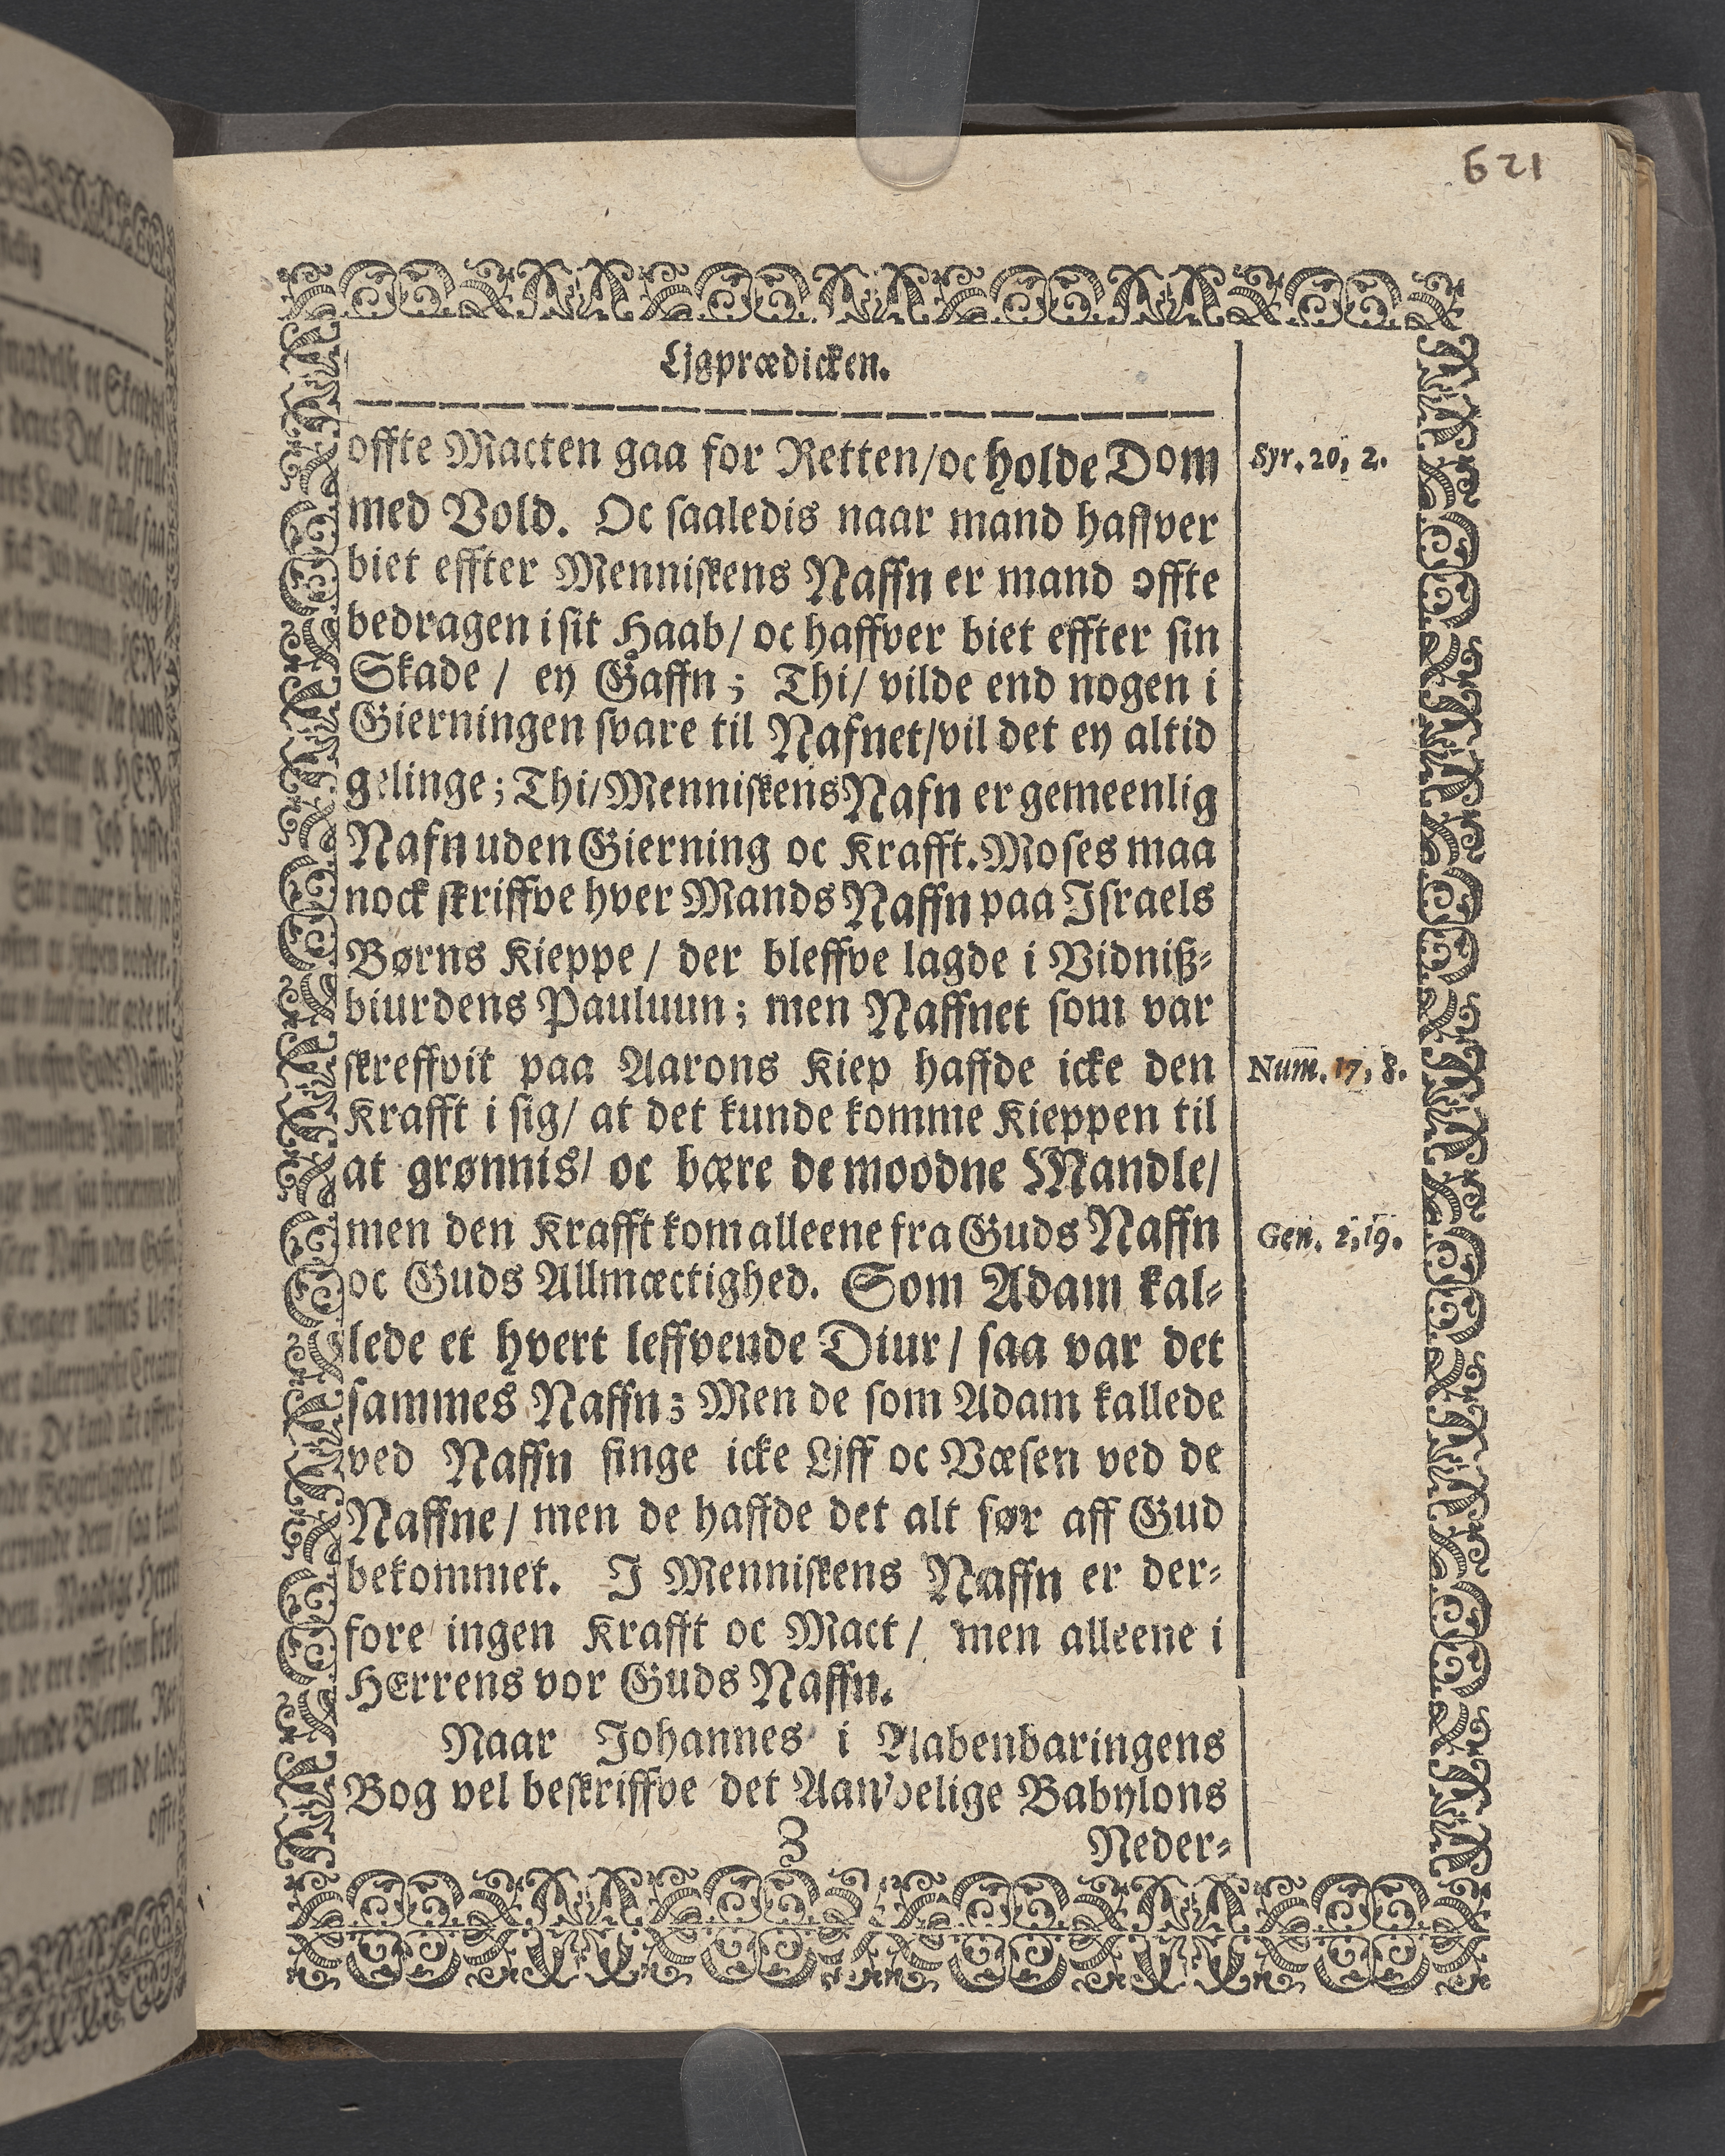 621
Ligprædicken.
offte Macten gaa for Retten/ oc holde Dom
Syr. 20, 2.
med Vold. Oc saaledis naar mand haffver
biet effter Menniskens Naffn er mand offte
bedragen i sit Haab/ oc haffver biet effter sin
Skade / ey Gaffn; Thi/ vilde end nogen i
Gierningen svare til Nafnet/ vil det ey altid
gelinge; Thi/ Menniskens Nafn er gemeenlig
Nafn uden Gierning oc Krafft. Moses maa
nock skriffve hver Mands Naffn paa Israels
Børns Kieppe / der bleffve lagde i Vidniß-
biurdens Pauluun; men Naffnet som var
skreffvit paa Aarons Kiep haffde icke den
Num. 17, 8.
Krafft i sig/ at det kunde komme Kieppen til
at grønnis/ oc bære de moodne Mandle/
men den Krafft kom alleene fra Guds Naffn
Gen. 2, 19.
oc Guds Allmæctighed. Som Adam kal-
lede et hvert leffvende Diur / saa var det
sammes Naffn; Men de som Adam kallede
ved Naffn finge icke Ljff oc Væsen ved de
Naffne / men de haffde det alt før aff Gud
bekommet. I Menniskens Naffn er der-
fore ingen Krafft oc Mact / men alleene i
HErrens vor Guds Naffn.
Naar Johannes i Aabenbaringens
Bog vel beskriffve det Aandelige Babylons
Z
Neder-